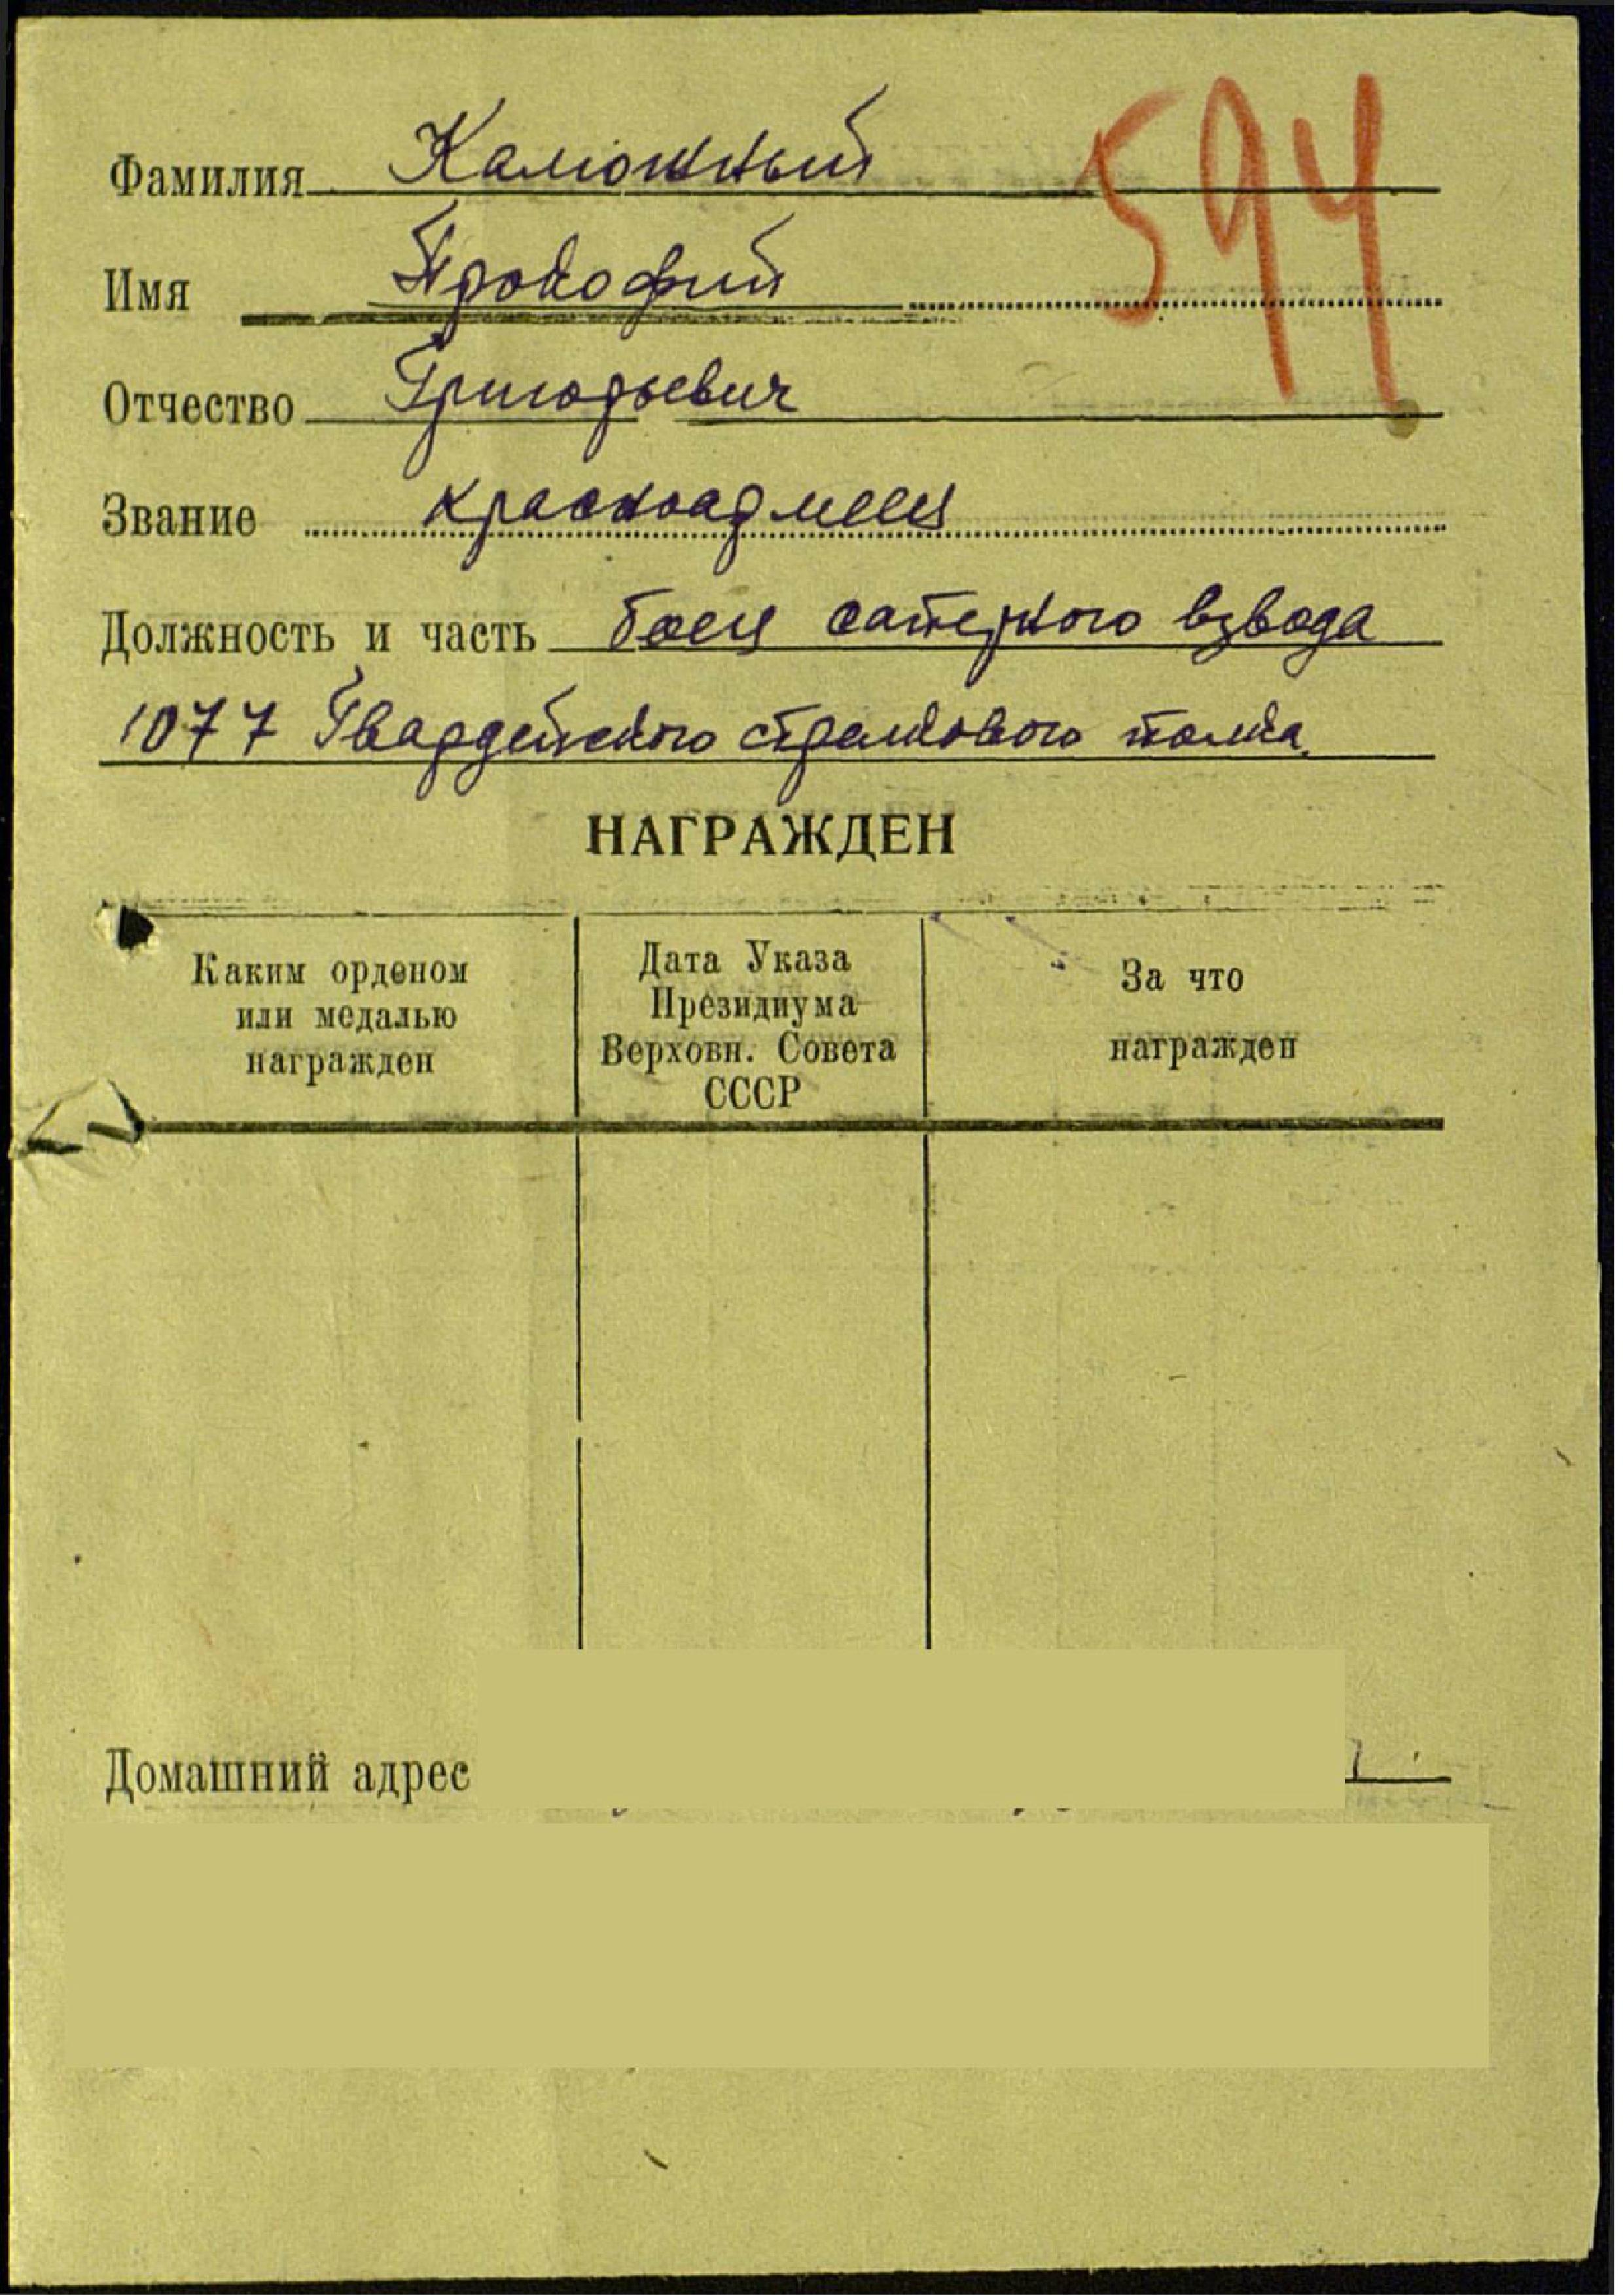 594
Фамилия Калюжный
Имя Прокофий
Отчество Григорьевич
Звание красноармеец
Должность и часть боец саперного взвода
1077 Гвардейского стрелкового полка
НАГРАЖДЕН
Каким орденом
или медалью
награжден
Дата Указа
Президиума
Верховн. Совета
СССР
За что
награжден
Домашний адрес